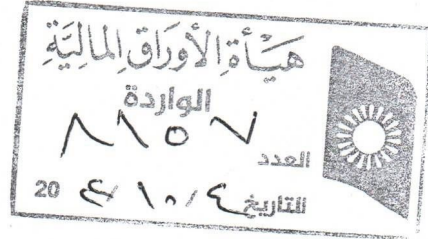 هَيْأَةِ الأَوْرَاقِ المَالِيَّةِ
الواردة
العدد ٨٨٥٧
التاريخ ٤/١٠/ 20